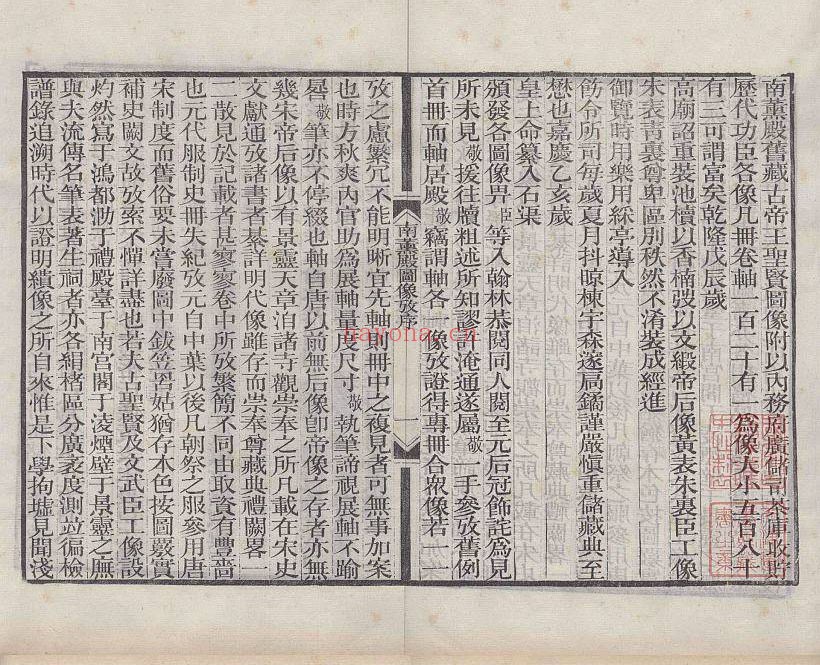 南薰殿舊藏古帝王聖賢圖像附以內務府廣儲司茶庫收貯
歷代功臣各像凡冊卷軸一百二十有一爲像大小五百八十
有三可謂富矣乾隆戊辰歲
高廟詔重裝池櫝以香楠弢以文緞帝后像黃表朱裏臣工像
朱表靑裏尊卑區別秩然不淆裝成經進
御覽時用樂用綵亭導入
飭令所司每歲夏月抖晾棟宇森邃扃鐍謹嚴愼重儲藏典至
懋也嘉慶乙亥歲
皇上命纂入石渠
頒發各圖像畀臣等入翰林恭閱同人閱至元后冠飾詫爲見
所未見敬援往牘粗述所知謬許淹通遂屬敬一手參攷舊例
首冊而軸居殿敬竊謂軸各一像攷證得專冊合衆像若一一
攷之慮繁冗不能明晰宜先軸則冊中之複見者可無事加案
也時方秋爽內官助爲展軸量度尺寸敬執筆諦視展軸不踰
晷敬筆亦不停綴也軸自唐以前無后像卽帝像之存者亦無
幾宋帝后像以有景靈天章洎諸寺觀崇奉之所凡載在宋史
文獻通攷諸書者綦詳明代像雖存而崇奉尊藏典禮闕畧一
一散見於記載者甚寥寥卷中所攷繁簡不同由取資有豐嗇
也元代服制史冊失紀攷元自中葉以後凡朝祭之服參用唐
宋制度而舊俗要未嘗廢圖中鈸笠罟姑猶存本色按圖覈實
補史闕文故攷索不憚詳盡也若夫古聖賢及文武臣工像設
灼然寫于鴻都泐于禮殿臺于南宮閣于淩煙壁于景靈之廡
與夫流傳名筆表著生祠者亦各絹楮區分廣袤度測竝徧檢
譜錄追溯時代以證明繢像之所自來惟是下學拘墟見聞淺
南薰殿圖像攷序
一
nayona.cn